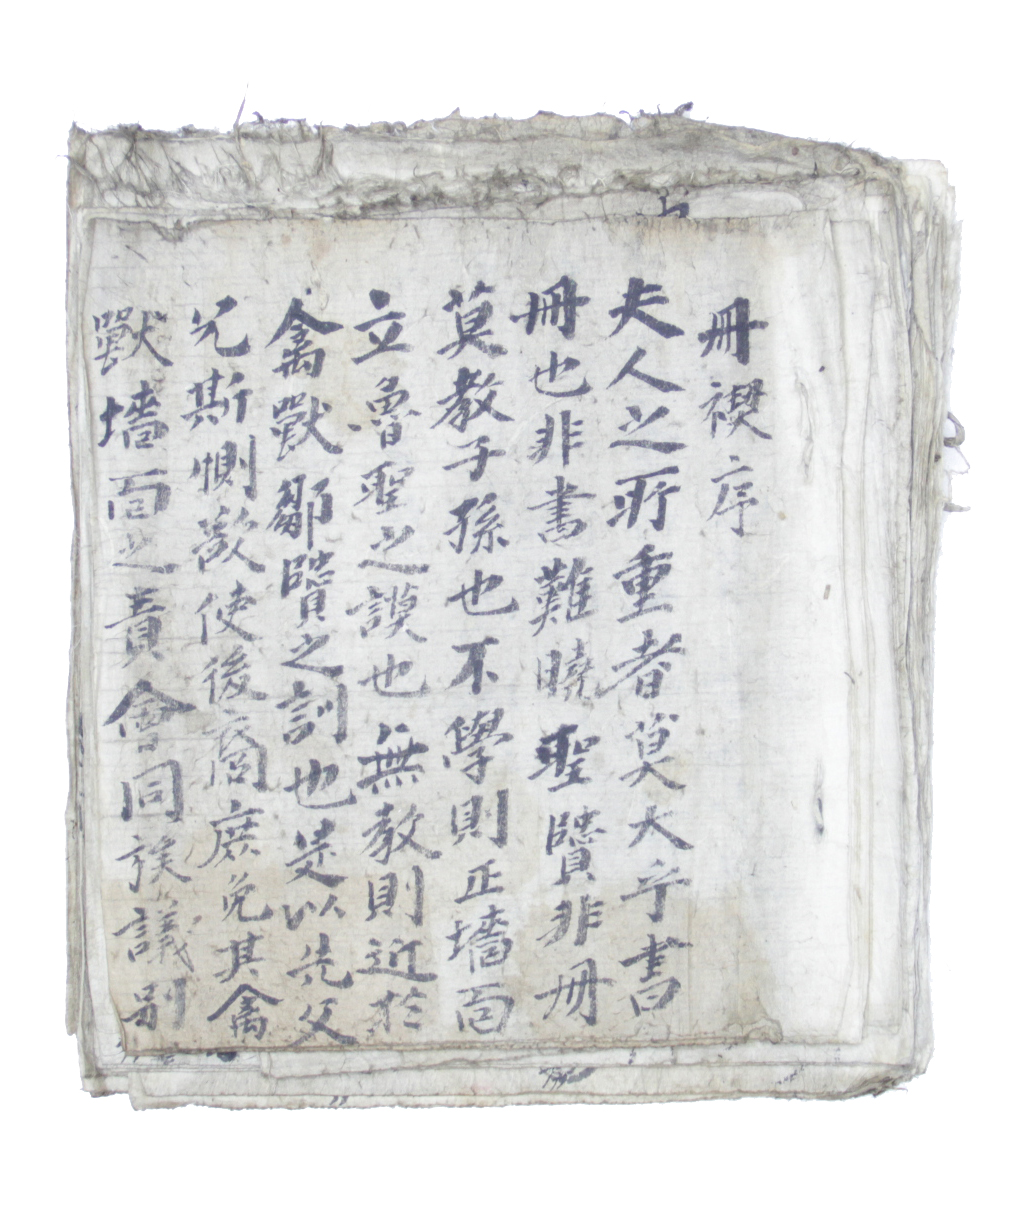 冊禊序
夫人之所重者莫大乎書
冊也非書難曉聖贒非冊
莫教子孫也不學則正墻面
立魯聖之謨也無教則近於
禽獸鄒贒之訓也是以先父
兄斯惻㪣使後裔庶免其禽
獸墻面之責會同族議別